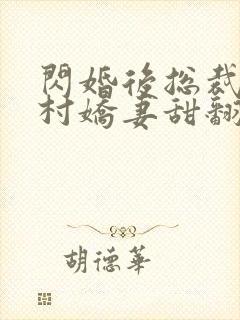 閃婚後总裁
村嬌妻甜翻
胡德華